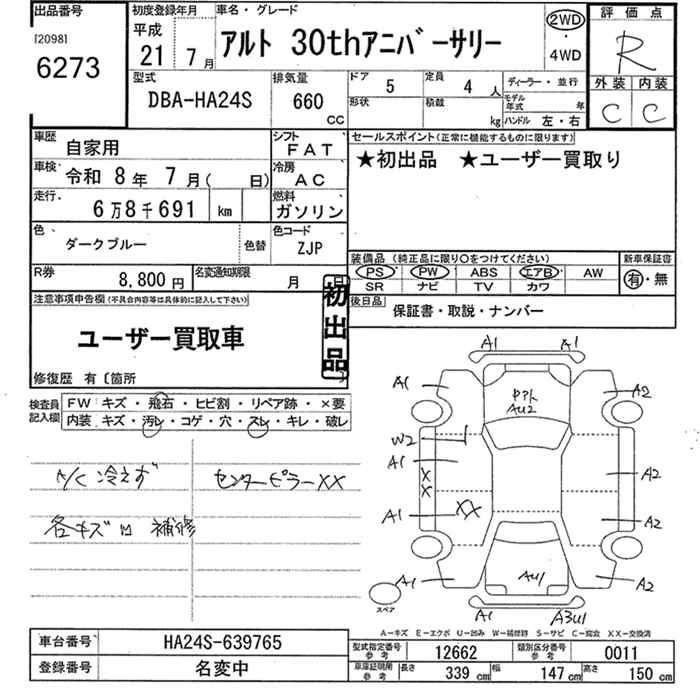 出品番号
[2098]
6273
初度登録年月
平成
21 年 7 月
車名・グレード
アルト 30thアニバーサリー
2WD
・
4WD
評価点
R
外装 内装
C C
型式
DBA-HA24S
排気量
660 CC
ドア 5
定員 4 人
形状
積載 kg
ディーラー・並行
モデル年式 年
ハンドル 左・右
車歴 自家用
シフト FAT
車検 令和 8年 7月( 日)
冷房 AC
走行 6万8千691 km
燃料 ガソリン
色 ダークブルー
色替
色コード ZJP
R券 8,800円
名変通知期限 月 日
セールスポイント(正常に機能するものに限ります)
★初出品 ★ユーザー買取り
装備品(純正品に限り○をつけてください)
新車保証書
PS PW ABS エアB AW
SR ナビ TV カワ
有・無
後日品
保証書・取説・ナンバー
注意事項申告欄(不具合内容等は具体的に記入して下さい)
ユーザー買取車
初出品
修復歴 有〔箇所 〕
検査員記入欄
FW キズ・飛石・ヒビ割・リペア跡・×要
内装 キズ・汚レ・コゲ・穴・スレ・キレ・破レ
A/C 冷えず
センターピラーXX
各キズ 補修
A1 A1
A1 A2
AU2
W2
A1 X X A2
A1 XX A2
A1 AU1 A2
スペア
A1 A3U1
A-キズ E-エクボ U-凹み W-補修跡 S-サビ C-腐食 XX-交換済
車台番号 HA24S-639765
登録番号 名変中
型式指定番号 参考 12662
類別区分番号 参考 0011
車庫証明用 参考 長さ 339 cm 幅 147 cm 高さ 150 cm